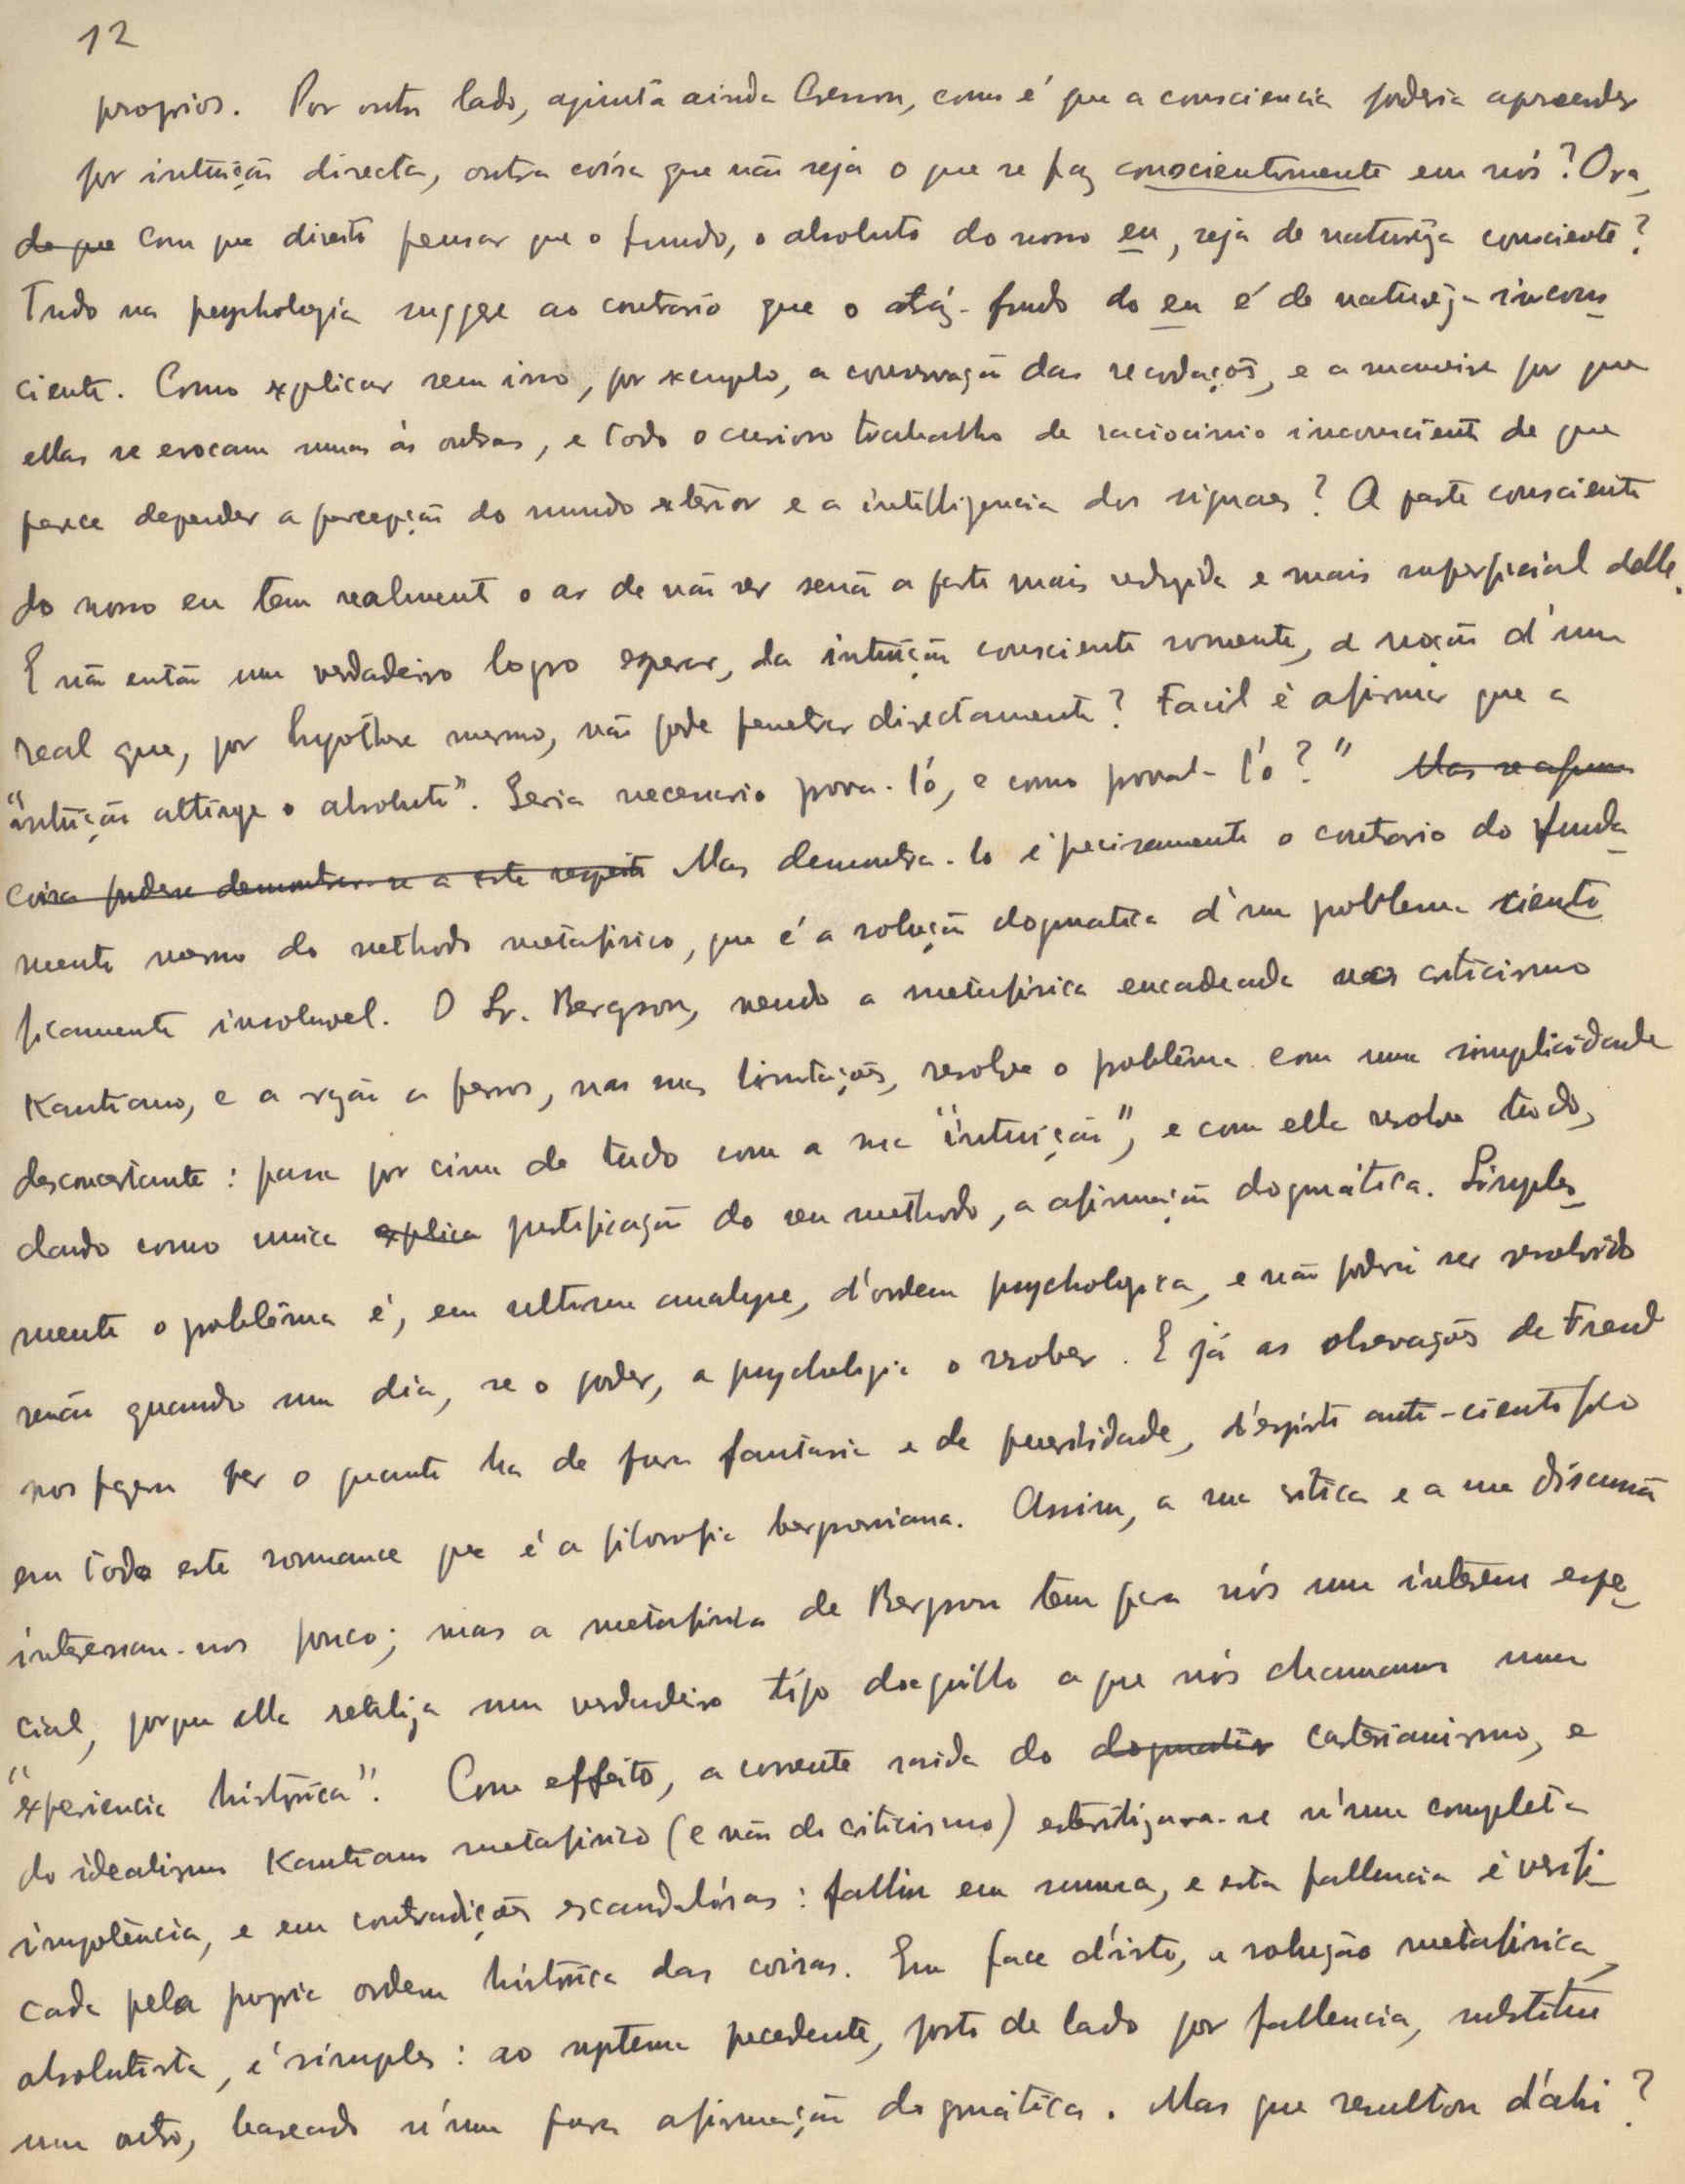 12
proprios. Por outro lado, ajunta ainda Cresson, como é que a consciencia poderia apreender
por intuição directa, outra coisa que não seja o que se faz conscientemente em nós? Ora,
de que com que direito pensar que o fundo, o absoluto do nosso eu, seja de naturêza consciente?
Tudo na psychologia suggere ao contrario que o atráz-fundo do eu é de naturêza incons
ciente. Como explicar sem isso, por exemplo, a conservação das recordações, e a maneira por que
ellas se evocam umas ás outras, e todo o curioso trabalho de raciocinio inconsciente de que
parece depender a percepção do mundo exterior e a intelligencia dos signaes? A parte consciente
do nosso eu tem realmente o ar de não ser senão a parte mais reduzida e mais superficial delle.
E não então um verdadeiro logro esperar, da intuição consciente somente, a noção d'um
real que, por hypothese mesmo, não pode penetrar directamente? Facil é afirmar que a
"intuição attinge o absoluto". Seria necessario prova-l'ó, e como proval-l'o?" Mas se alguma
coisa pudesse demonstrar-se a este respeito Mas demonstra-lo é precisamente o contrario do funda
mento mesmo do methodo metafisico, que é a solução dogmatica d'um problema cienti
ficamente insoluvel. O Sr. Bergson, vendo a metafisica encadeada no criticismo
Kantiano, e a rezão a ferros, nas suas limitações, resolve o problêma com uma simplicidade
desconcertante: passa por cima de tudo com a sua "intuição", e com ella resolve tudo,
dando como unica explica justificação do seu methodo, a afirmação dogmática. Simples
mente o problêma é, em ultima analyse, d'ordem psychologica, e não poderá ser resolvido
senão quando um dia, se o poder, a psychologia o resolver. E já as observações de Freud
nos fazem ver o quanto ha de pura fantasia e de puerilidade, d'espirito anti-cientifico
em todo este romance que é a filosofia bergsoniana. Assim, a sua critica e a sua discussão
interessam-nos pouco; mas a metafisica de Bergson tem para nós um interesse espe
cial, porque ella realiza um verdadeiro tipo daquillo a que nós chamamos uma
"experiencia histórica". Com effeito, a corrente saida do dogmatis cartesianismo, e
do idealismo Kantiano metafisico (e não do criticismo) esterilizara-se n'uma completa
impotência, e em contradições escandalósas: falliu em summa, e esta fallencia é verifi
cada pela propria ordem histórica das coisas. Em face d'isto, a solução metafisica,
absolutista, é simples: ao systema precedente, posto de lado por fallencia, substitue
um outro, baseado n'uma pura afirmação dogmática. Mas que resultou d'ahi?